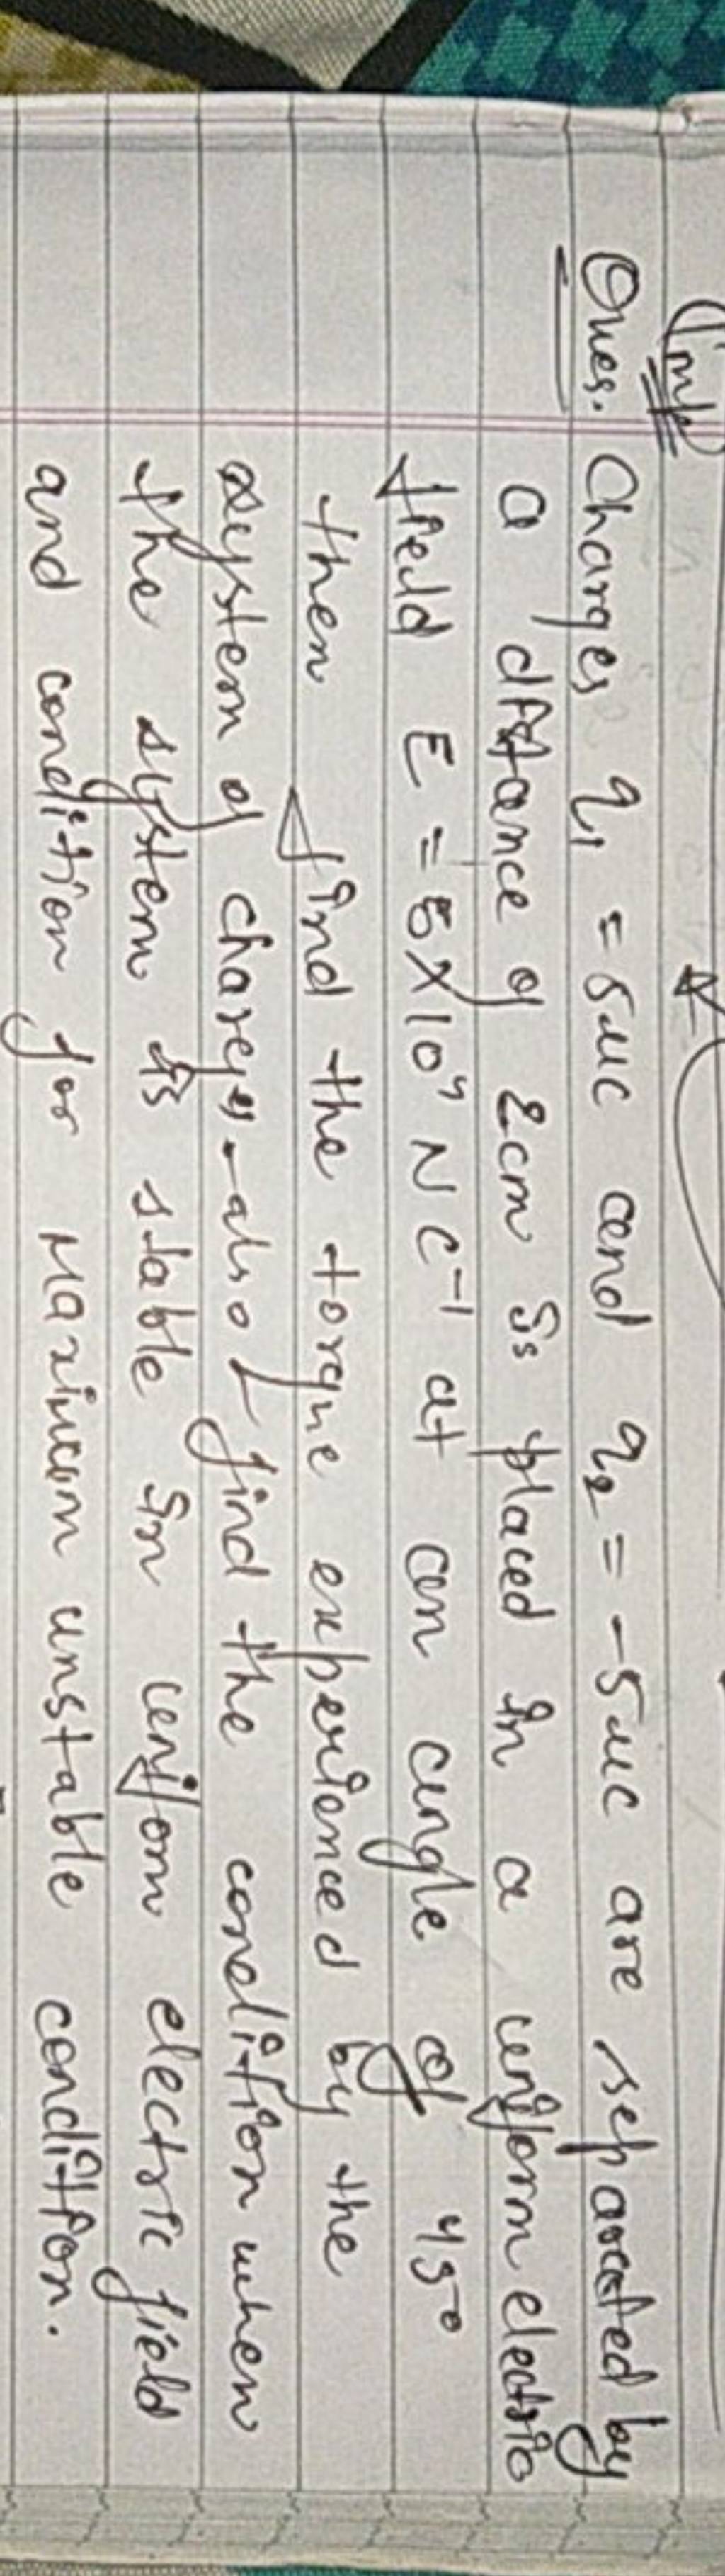 Imp
Ques. Charges q1 = 5uc and q2 = -5uc are separated by
a distance of 2cm is placed in a uniform electric
field E = 5×10⁴ N C⁻¹ at an angle of 45°
then find the torque experienced by the
system of charges also find the condition when
the system is stable in uniform electric field
and condition for Maximum unstable condition.